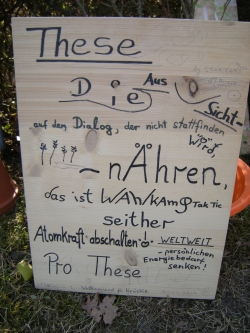 These
Die Aus Sicht-
auf dem Dialog, der nicht stattfinden wird,
- nÄhren,
das ist WAhlKAmpf TakTic
seither
Atomkraft abschalten WELTWEIT
- persönlichen
Energiebedarf
senken!
Pro These